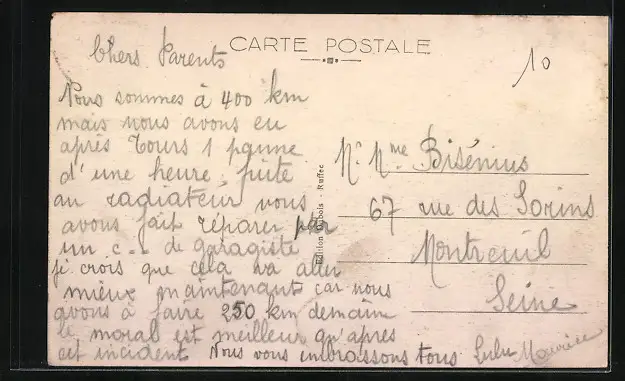 CARTE POSTALE
10
Chers Parents
Nous sommes à 400 km
mais nous avons eu
après Tours 1 panne
d'une heure, fuite
au radiateur nous
avons fait réparer par
un c... de garagiste
je crois que cela va aller
mieux maintenant car nous
avons à faire 250 km demain
le moral est meilleur qu'après
cet incident Nous vous embrassons tous Lulu Maurice
Mr Mme Bisénius
67 rue des Sorins
Montreuil
Seine
Edition Dubois - Ruffec